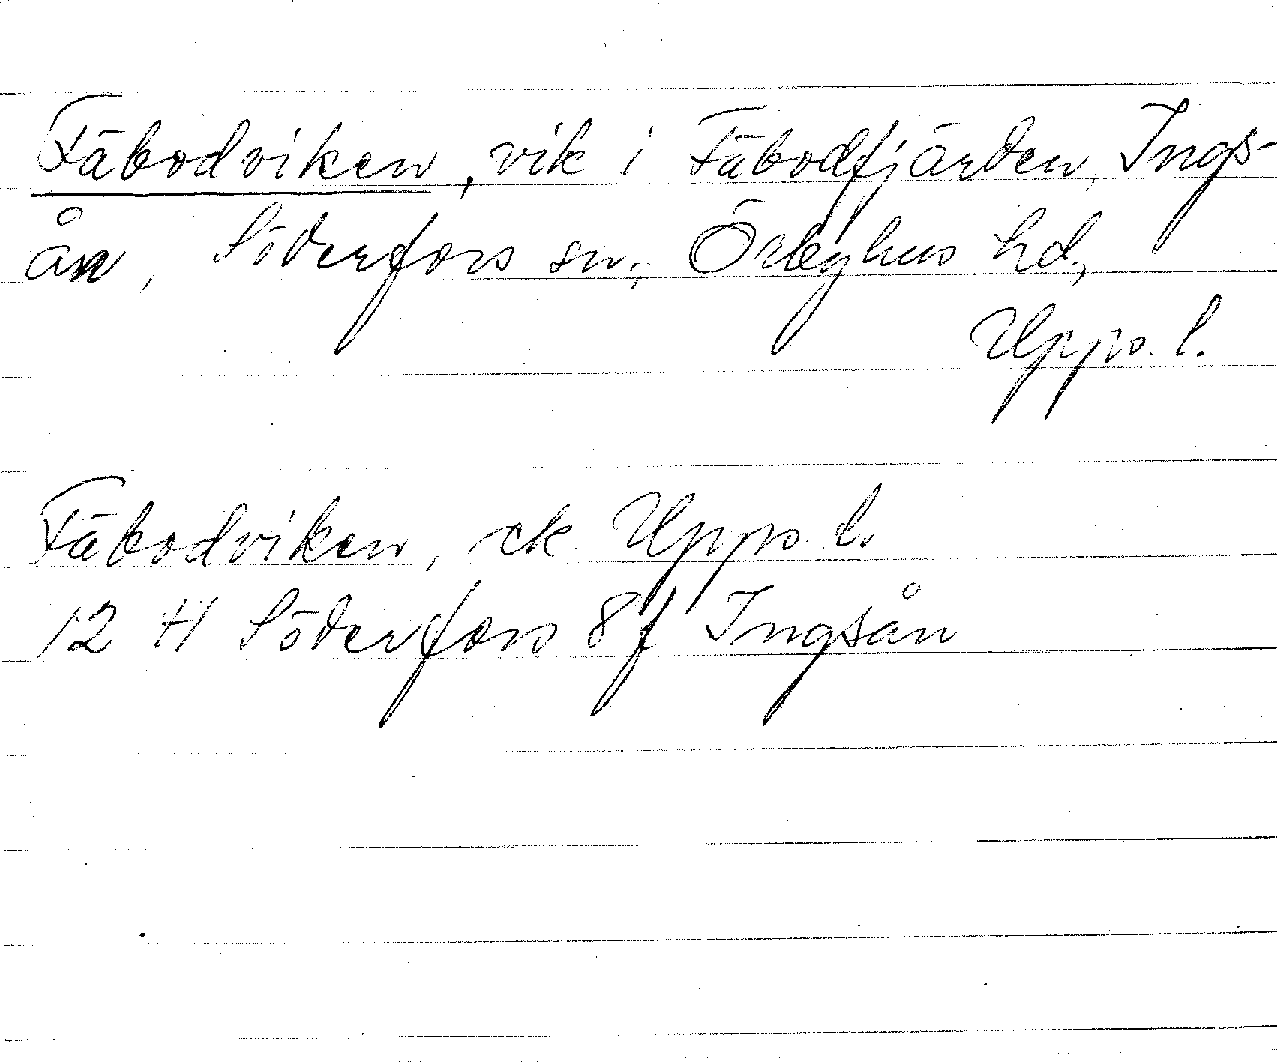 Fäbodviken, vik i Fäbodfjärden, Ings-
ån, Söderfors sn, Örbyhus hd,
Upps. l.
Fäbodviken, ek Upps. l.
12 H Söderfors 8f Ingsån